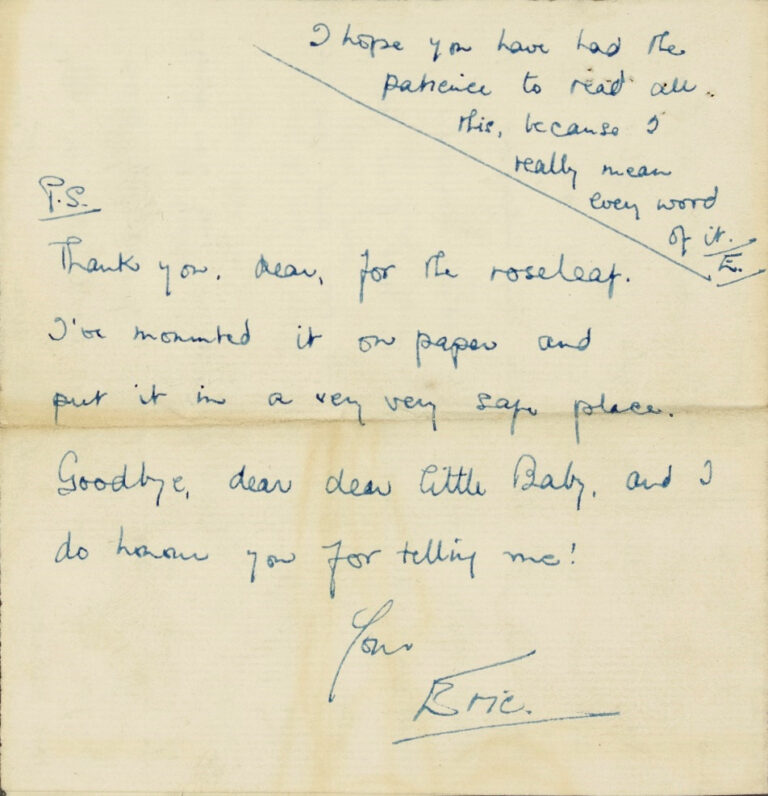 I hope you have had the
patience to read all
this, because I
really mean
every word
of it.
E.
P.S.
Thank you, dear, for the roseleaf.
I've mounted it on paper and
put it in a very very safe place.
Goodbye, dear dear little Baby, and I
do honour you for telling me!
Your
Eric.